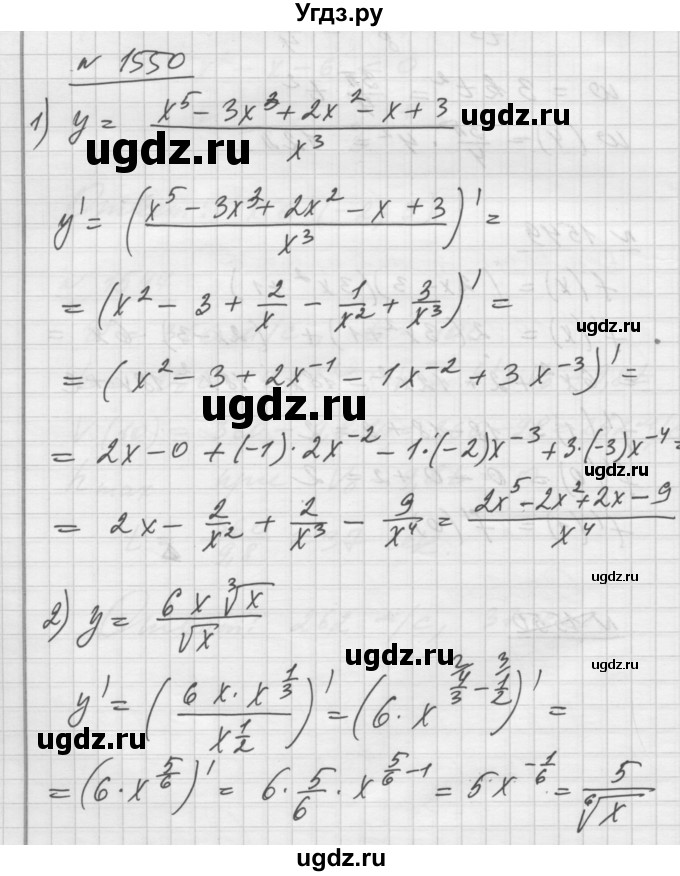 Угдз.ру
№ 1550
1) y = (x^5 - 3x^3 + 2x^2 - x + 3) / x^3
ugdz.ru
y' = ((x^5 - 3x^3 + 2x^2 - x + 3) / x^3)' =
= (x^2 - 3 + 2/x - 1/x^2 + 3/x^3)' =
ugdz.ru
= (x^2 - 3 + 2x^-1 - 1x^-2 + 3x^-3)' =
ugdz.ru
= 2x - 0 + (-1)·2x^-2 - 1·(-2)x^-3 + 3·(-3)x^-4 =
ugdz.ru
= 2x - 2/x^2 + 2/x^3 - 9/x^4 = (2x^5 - 2x^2 + 2x - 9) / x^4
ugdz.ru
2) y = 6x∛x / √x
ugdz.ru
y' = ((6x·x^(1/3)) / x^(1/2))' = (6·x^(4/3 - 1/2))' =
ugdz.ru
= (6·x^(5/6))' = 6·5/6·x^(5/6 - 1) = 5x^(-1/6) = 5/⁶√x
ugdz.ru
ugdz.ru